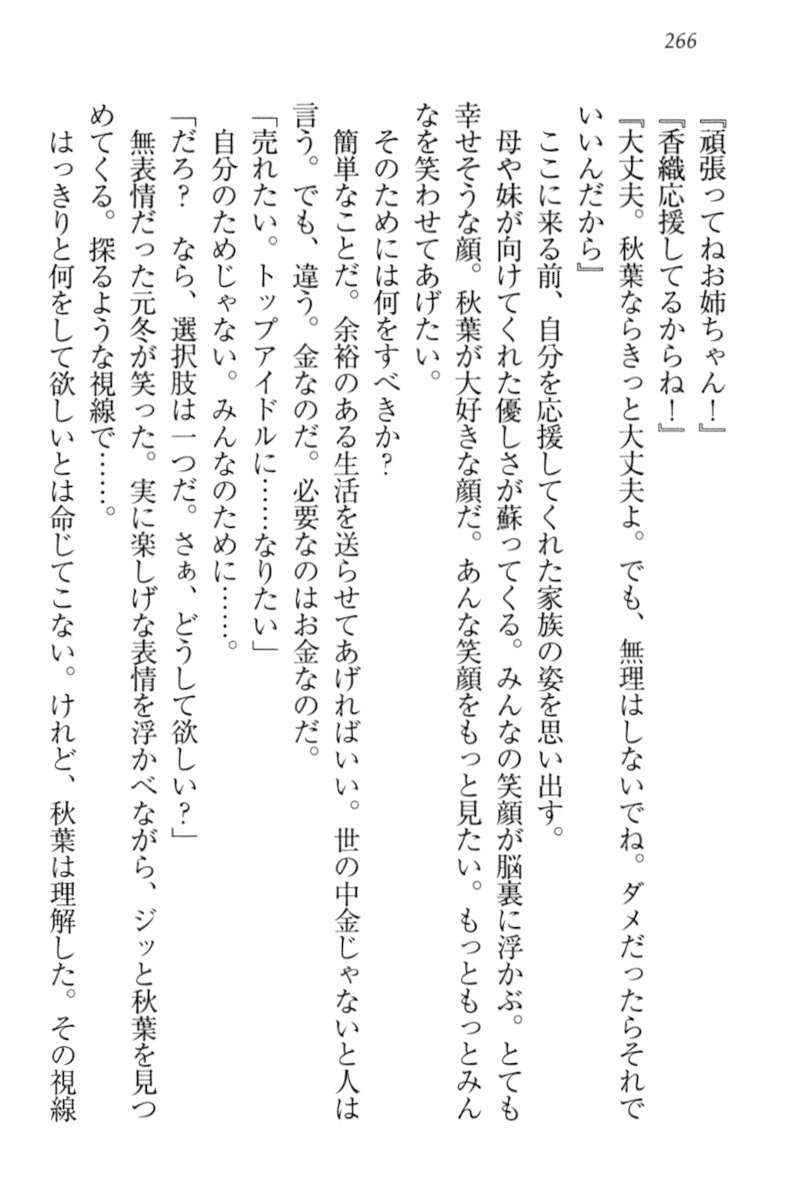 266
『頑張ってねお姉ちゃん！』
『香織応援してるからね！』
『大丈夫。秋葉ならきっと大丈夫よ。でも、無理はしないでね。ダメだったらそれで
いいんだから』
ここに来る前、自分を応援してくれた家族の姿を思い出す。
母や妹が向けてくれた優しさが蘇ってくる。みんなの笑顔が脳裏に浮かぶ。とても
幸せそうな顔。秋葉が大好きな顔だ。あんな笑顔をもっと見たい。もっともっとみん
なを笑わせてあげたい。
そのためには何をすべきか？
簡単なことだ。余裕のある生活を送らせてあげればいい。世の中金じゃないと人は
言う。でも、違う。金なのだ。必要なのはお金なのだ。
「売れたい。トップアイドルに……なりたい」
自分のためじゃない。みんなのために……。
「だろ？　なら、選択肢は一つだ。さぁ、どうして欲しい？」
無表情だった元冬が笑った。実に楽しげな表情を浮かべながら、ジッと秋葉を見つ
めてくる。探るような視線で……。
はっきりと何をして欲しいとは命じてこない。けれど、秋葉は理解した。その視線